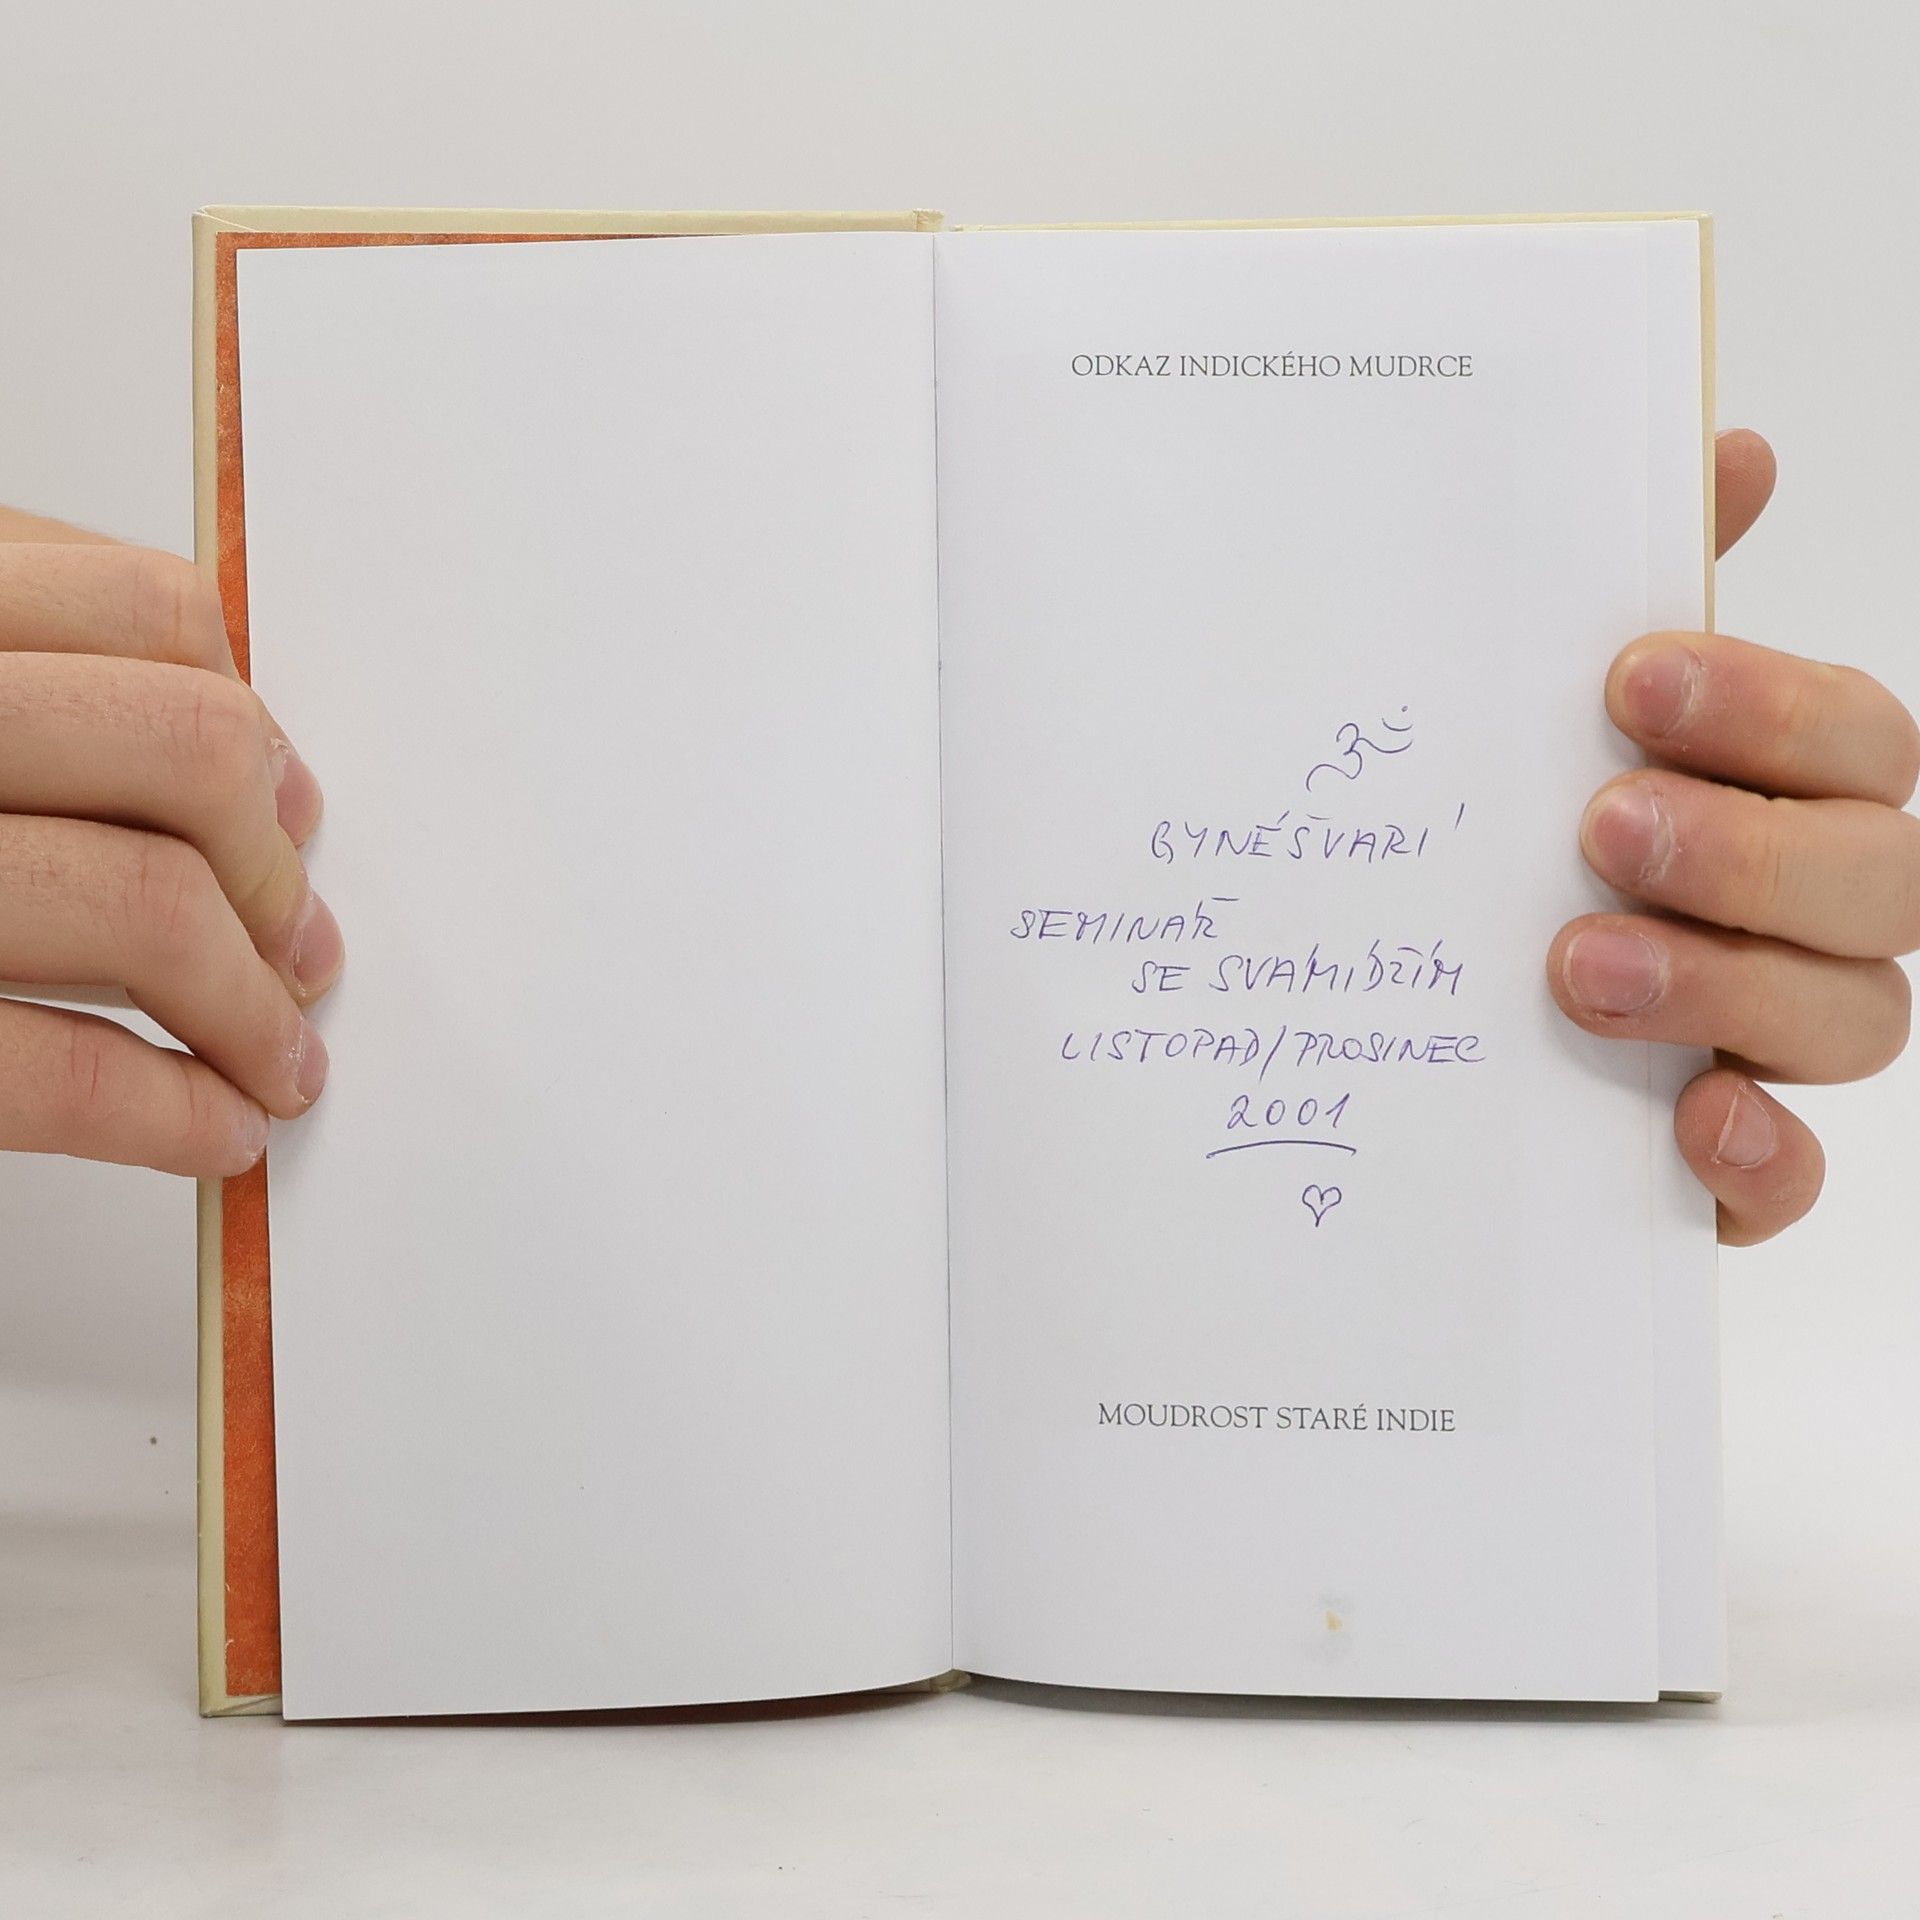 ODKAZ INDICKÉHO MUDRCE
ॐ
GYNÉŠVARÍ
SEMINÁŘ
SE SVÁMÍDŽÍM
LISTOPAD/PROSINEC
2001
MOUDROST STARÉ INDIE